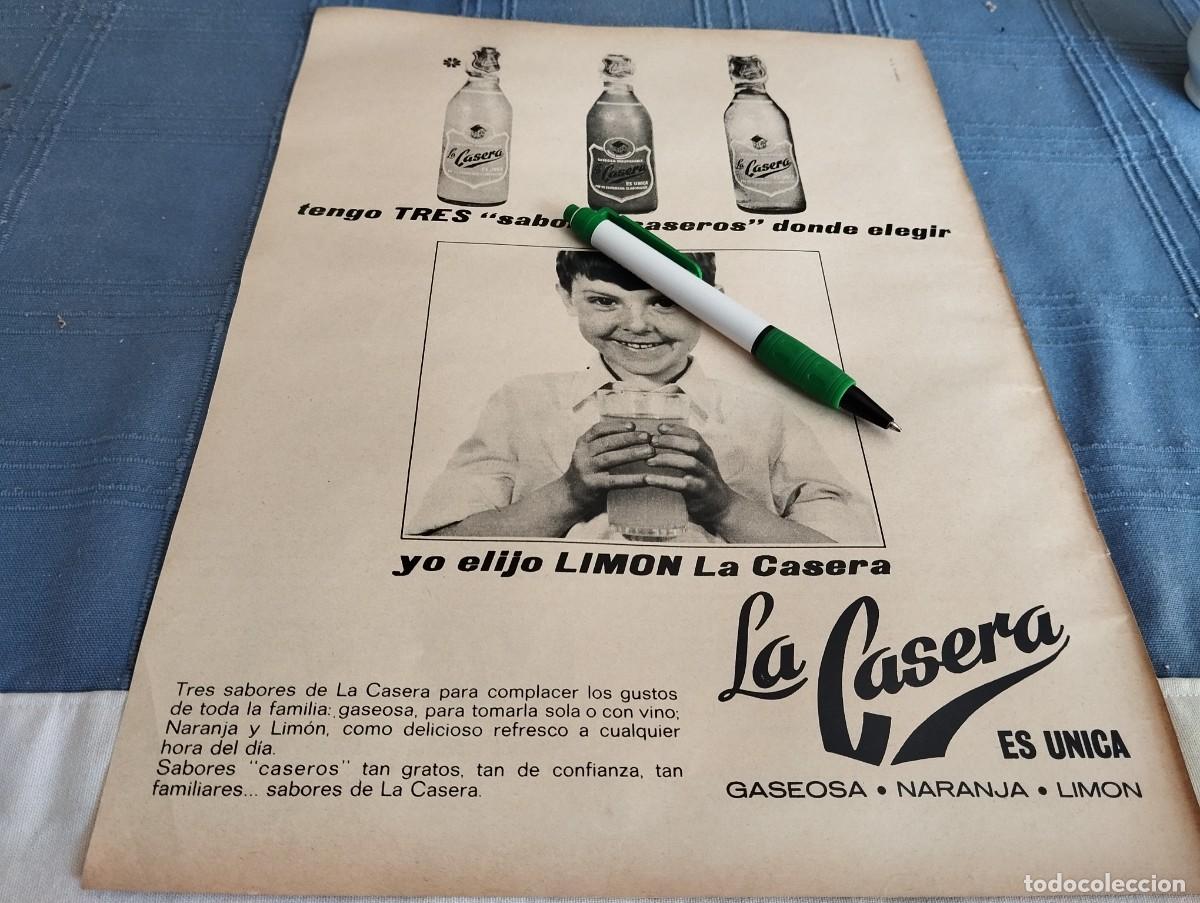 La Casera
La Casera
ES UNICA
La Casera
tengo TRES "sabo caseros" donde elegir
yo elijo LIMON La Casera
La Casera
ES UNICA
GASEOSA • NARANJA • LIMON
Tres sabores de La Casera para complacer los gustos
de toda la familia: gaseosa, para tomarla sola o con vino;
Naranja y Limón, como delicioso refresco a cualquier
hora del día.
Sabores "caseros" tan gratos, tan de confianza, tan
familiares... sabores de La Casera.
todocoleccion